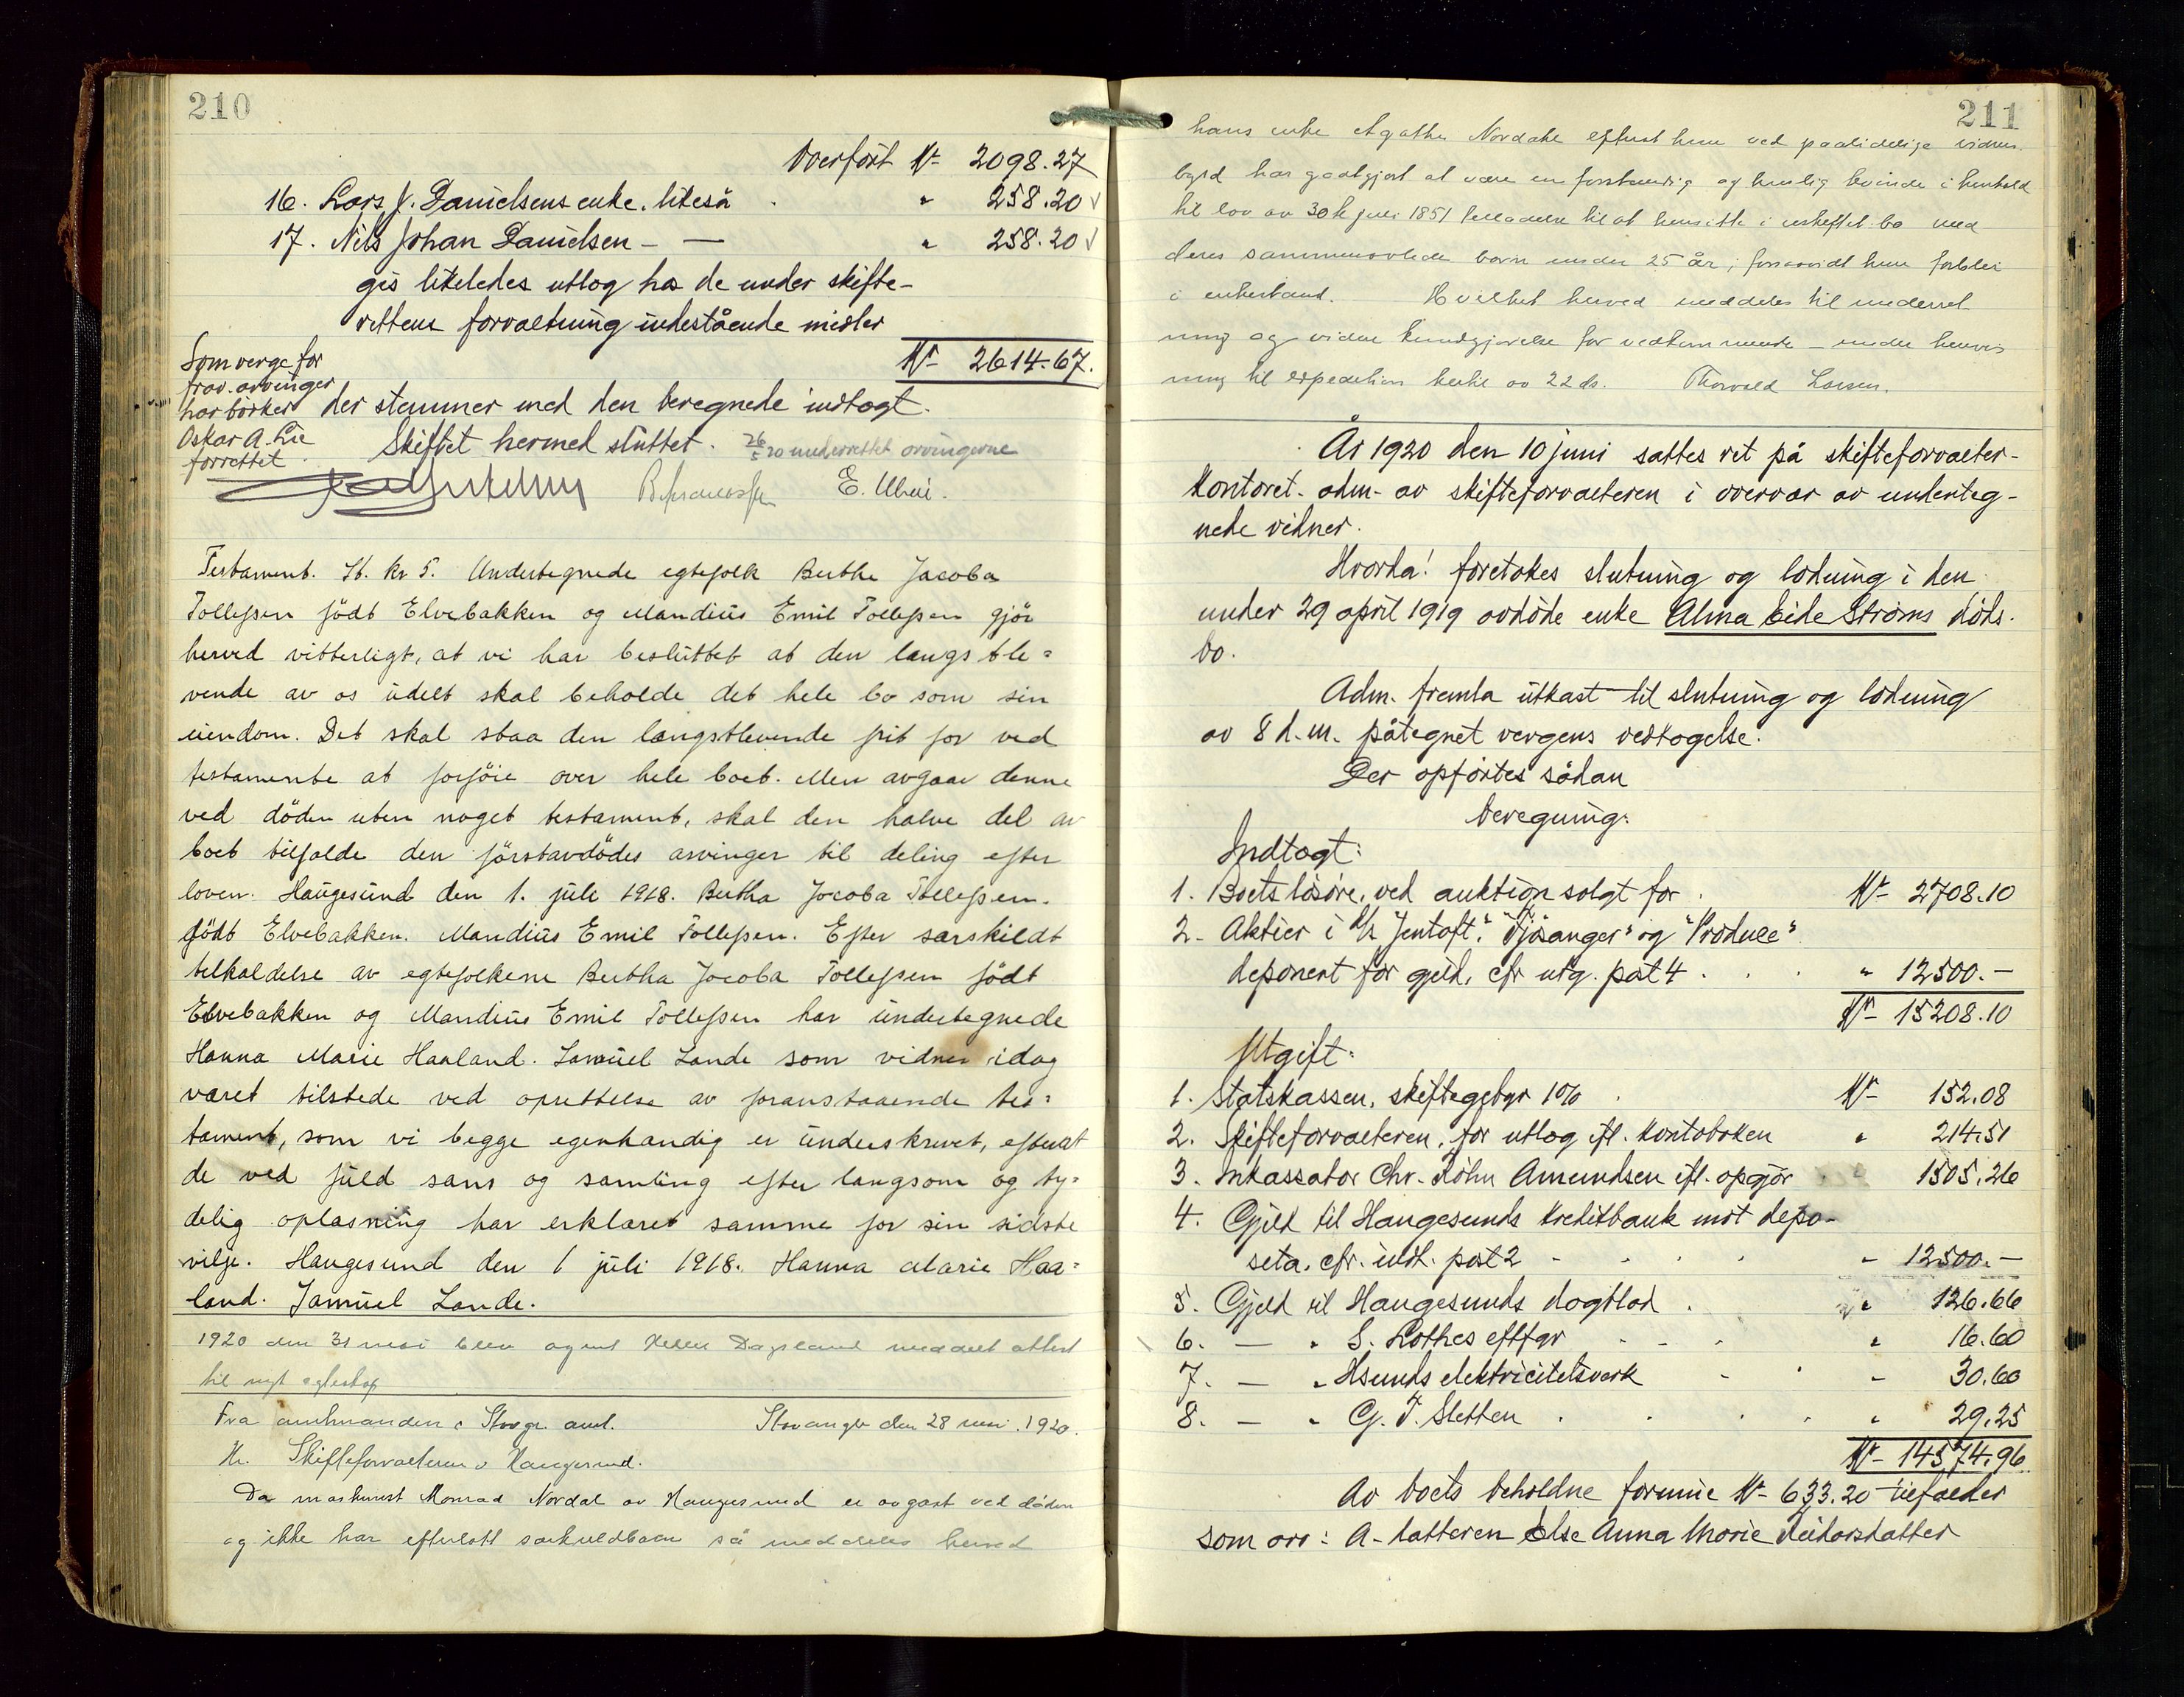 210
Overført Kr 2098.27
16. Lars J. Danielsens enke, likeså " 258.20
17. Nils Johan Danielsen - — " 258.20
gis likeledes utlog hos de under skifte-
rettens forvaltning indestående midler
Kr 2614.67.
Som verge for
frav. arvinger
har
Oskar A. Lie
forrettet
der stemmer med den beregnede indtægt.
Skiftet hermed sluttet. 26/5 20 underrettet arvingerne
Testament. St. kr 5. Undertegnede egtefolk Berthe Jacoba
Tollefsen født Elvebakken og Mandius Emil Tollefsen gjör
herved vitterligt, at vi har besluttet at den længstle=
vende av os udelt skal beholde det hele bo som sin
eiendom. Det skal staa den længstlevende frit for ved
testamente at forföie over hele boet. Men avgaar denne
ved döden uten noget testament, skal den halve del av
boet tilfalde den förstavdödes arvinger til deling efter
loven. Haugesund den 1. juli 1918. Bertha Jacoba Tollefsen.
född Elvebakken. Mandius Emil Tollefsen. Efter særskildt
tilkaldelse av egtefolkene Bertha Jacoba Tollefsen födt
Elvebakken og Mandius Emil Tollefsen har undertegnede
Hanna Marie Haaland. Samuel Lande som vidner idag
været tilstede ved oprettelse av foranstaaende tes=
tament, som vi begge egenhændig er underskrevet, efterat
de ved fuld sans og samling efter langsom og ty=
delig oplæsning har erklæret samme for sin sidste
vilje. Haugesund den 1 juli 1918. Hanna Marie Haa=
land. Samuel Lande.
1920 den 31 mai blev agent Dagsland meddelt attest
til nyt egteskap
Fra amtmanden i Stavgr. amt. Stavanger den 28 mai 1920.
Hr. Skifteforvalteren i Haugesund.
Da maskinist Monrad Nordal av Haugesund er avgåt ved döden
og ikke har efterlatt særkuldbarn så meddeles herved
211
hans enke Agathe Nordahl efterat hun ved paalidelige vidnes-
byrd har godtgjort at være en forstandig og huslig kvinde i henhold
til lov av 30te juli 1851 tilladelse til at hensitte i uskiftet bo med
deres sammenavlede barn under 25 år, forsaavidt hun forblir
i enkestand. Hvilket herved meddeles til underret-
ning og videre kundgjørelse for vedkommende - under henvis
ning til expedition herfra av 22 ds. Thorvald Larsen.
År 1920 den 10 juni sattes ret på skifteforvalter-
kontoret. adm. av skifteforvalteren i overvær av underteg-
nede vidner.
Hvorda! foretokes slutning og lodning i den
under 29 april 1919 avdöde enke Alma Eide Ströms döds-
bo.
Adm. fremla utkast til slutning og lodning
av 8 d.m. påtegnet vergens vedtagelse.
Der opførtes sådan
beregning:
Indtægt:
1. Boets lösöre, ved auktion solgt for . Kr 2708.10
2. Aktier i A/S "Jentoft", "Fjösanger" og "Produce"
deponert for gjeld, cfr utg. post 4 . . . " 12500.-
Kr 15208.10
Utgift:
1. Statskassen, skiftegebyr 1% . Kr 152.08
2. Skifteforvalteren, for utlæg ifl. kontoboken " 214.51
3. Inkassator Chr. Köhn Amundsen ifl. opgjör 1505.26
4. Gjeld til Haugesunds Kreditbank mot depo-
seta, cfr. indt. post 2 - . . . - 12500.-
5. Gjeld til Haugesunds Dagblad . " 126.66
6. — " S. Lothes eftfgr - - - " 16.60
7. — " Hsunds elektricitetsverk - . - 30.60
8. — " G. T. Sletten . . . . " 29.25
Kr 14574.96
Av boets beholdne formue Kr 633.20 tilfalder
som arv: A- datteren Else Anna Marie